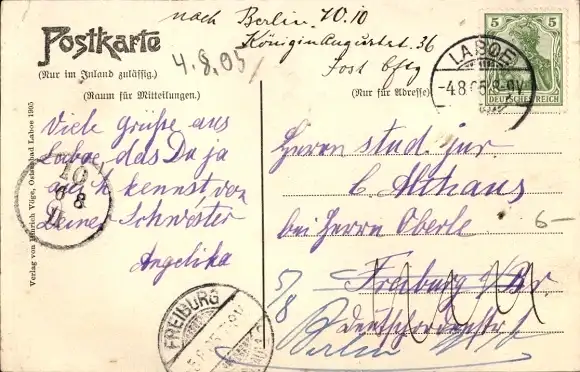 nach Berlin W.10
Königin Auguststr. 36
Post
4.8.05
Postkarte
(Nur im Inland zulässig.)
(Raum für Mitteilungen.)
(Nur für Adresse)
5 5
DEUTSCHES REICH
LABOE
-4.8.05 8-9V
Viele Grüße aus
Laboe, das Du ja
auch kennst von
Deiner Schwester
Angelika
Verlag von Hinrich Vöge, Ostseebad Laboe 1905
10
6 8
Herrn stud. jur.
Althaus
bei Herrn Oberle
6-
Freiburg i/Br
5/8
Berlin
FREIBURG